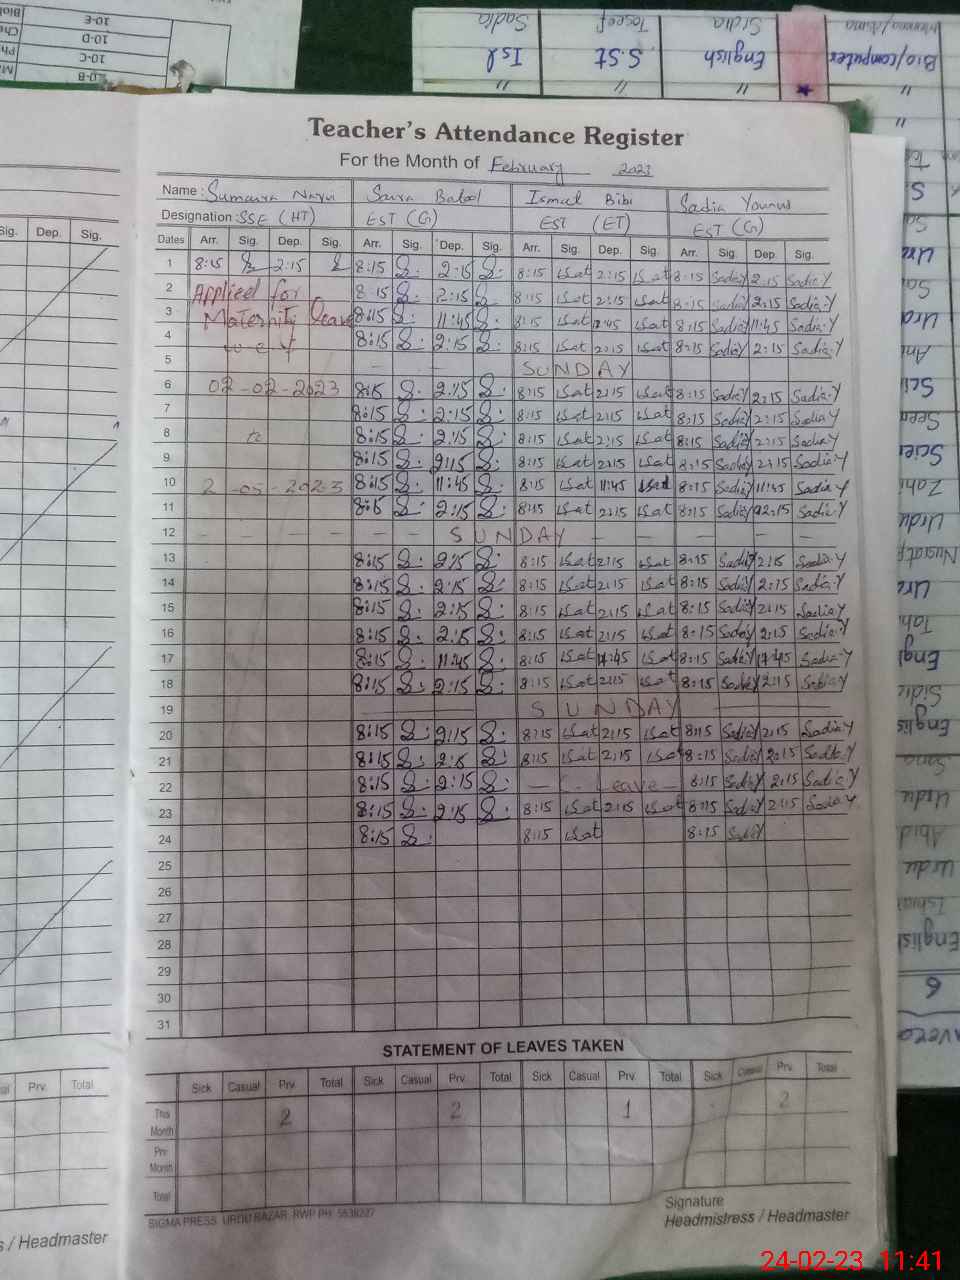 Sadia Toseef Sidra
Isl S.St English Bio/computer
10-E
10-D
10-C
10-B
Teacher's Attendance Register
For the Month of February 2023
Name : Sumaira
Designation : SSE (HT) EST (G) EST (ET) EST (G)
Ismat Bibi Sadia Younus
Dates Arr. Sig. Dep. Sig. Arr. Sig. Dep. Sig. Arr. Sig. Dep. Sig. Arr. Sig. Dep. Sig.
1 8:15 2:15 8:15 S. 2:15 S. 8:15 iSat 2:15 iSat 8:15 SadiaY 2:15 Sadia.Y
2 Applied for 8:15 S. 2:15 S. 8:15 iSat 2:15 iSat 8:15 SadiaY 2:15 Sadia.Y
3 Maternity leave 8:15 S. 11:45 S. 8:15 iSat 11:45 iSat 8:15 SadiaY 11:45 Sadia.Y
4 w e f 8:15 S. 2:15 S. 8:15 iSat 2:15 iSat 8:15 SadiaY 2:15 Sadia.Y
5 SUNDAY
6 02-02-2023 8:15 S. 2:15 S. 8:15 iSat 2:15 iSat 8:15 SadiaY 2:15 Sadia.Y
7 8:15 S. 2:15 S. 8:15 iSat 2:15 iSat 8:15 SadiaY 2:15 Sadia.Y
8 to 8:15 S. 2:15 S. 8:15 iSat 2:15 iSat 8:15 SadiaY 2:15 Sadia.Y
9 8:15 S. 2:15 S. 8:15 iSat 2:15 iSat 8:15 SadiaY 2:15 Sadia.Y
10 2-05-2023 8:15 S. 11:45 S. 8:15 iSat 11:45 iSat 8:15 SadiaY 11:45 Sadia.Y
11 8:15 S. 2:15 S. 8:15 iSat 2:15 iSat 8:15 SadiaY 2:15 Sadia.Y
12 SUNDAY
13 8:15 S. 2:15 S. 8:15 iSat 2:15 iSat 8:15 SadiaY 2:15 Sadia.Y
14 8:15 S. 2:15 S. 8:15 iSat 2:15 iSat 8:15 SadiaY 2:15 Sadia.Y
15 8:15 S. 2:15 S. 8:15 iSat 2:15 iSat 8:15 SadiaY 2:15 Sadia.Y
16 8:15 S. 2:15 S. 8:15 iSat 2:15 iSat 8:15 SadiaY 2:15 Sadia.Y
17 8:15 S. 11:45 S. 8:15 iSat 11:45 iSat 8:15 SadiaY 11:45 Sadia.Y
18 8:15 S. 2:15 S. 8:15 iSat 2:15 iSat 8:15 SadiaY 2:15 Sadia.Y
19 SUNDAY
20 8:15 S. 2:15 S. 8:15 iSat 2:15 iSat 8:15 SadiaY 2:15 Sadia.Y
21 8:15 S. 2:15 S. 8:15 iSat 2:15 iSat 8:15 SadiaY 2:15 Sadia.Y
22 8:15 S. 2:15 S. Leave 8:15 SadiaY 2:15 Sadia.Y
23 8:15 S. 2:15 S. 8:15 iSat 2:15 iSat 8:15 SadiaY 2:15 Sadia.Y
24 8:15 S. 8:15 iSat 8:15 SadiaY
25
26
27
28
29
30
31
STATEMENT OF LEAVES TAKEN
Sick Casual Prv. Total Sick Casual Prv. Total Sick Casual Prv. Total Sick Casual Prv. Total
This Month 2 2 1 2
Prv. Month
Total
SIGMA PRESS URDU BAZAR, RWP PH: 5538227
Signature
Headmistress / Headmaster
Sig. Dep. Sig.
Prv. Total
s / Headmaster
24-02-23 11:41